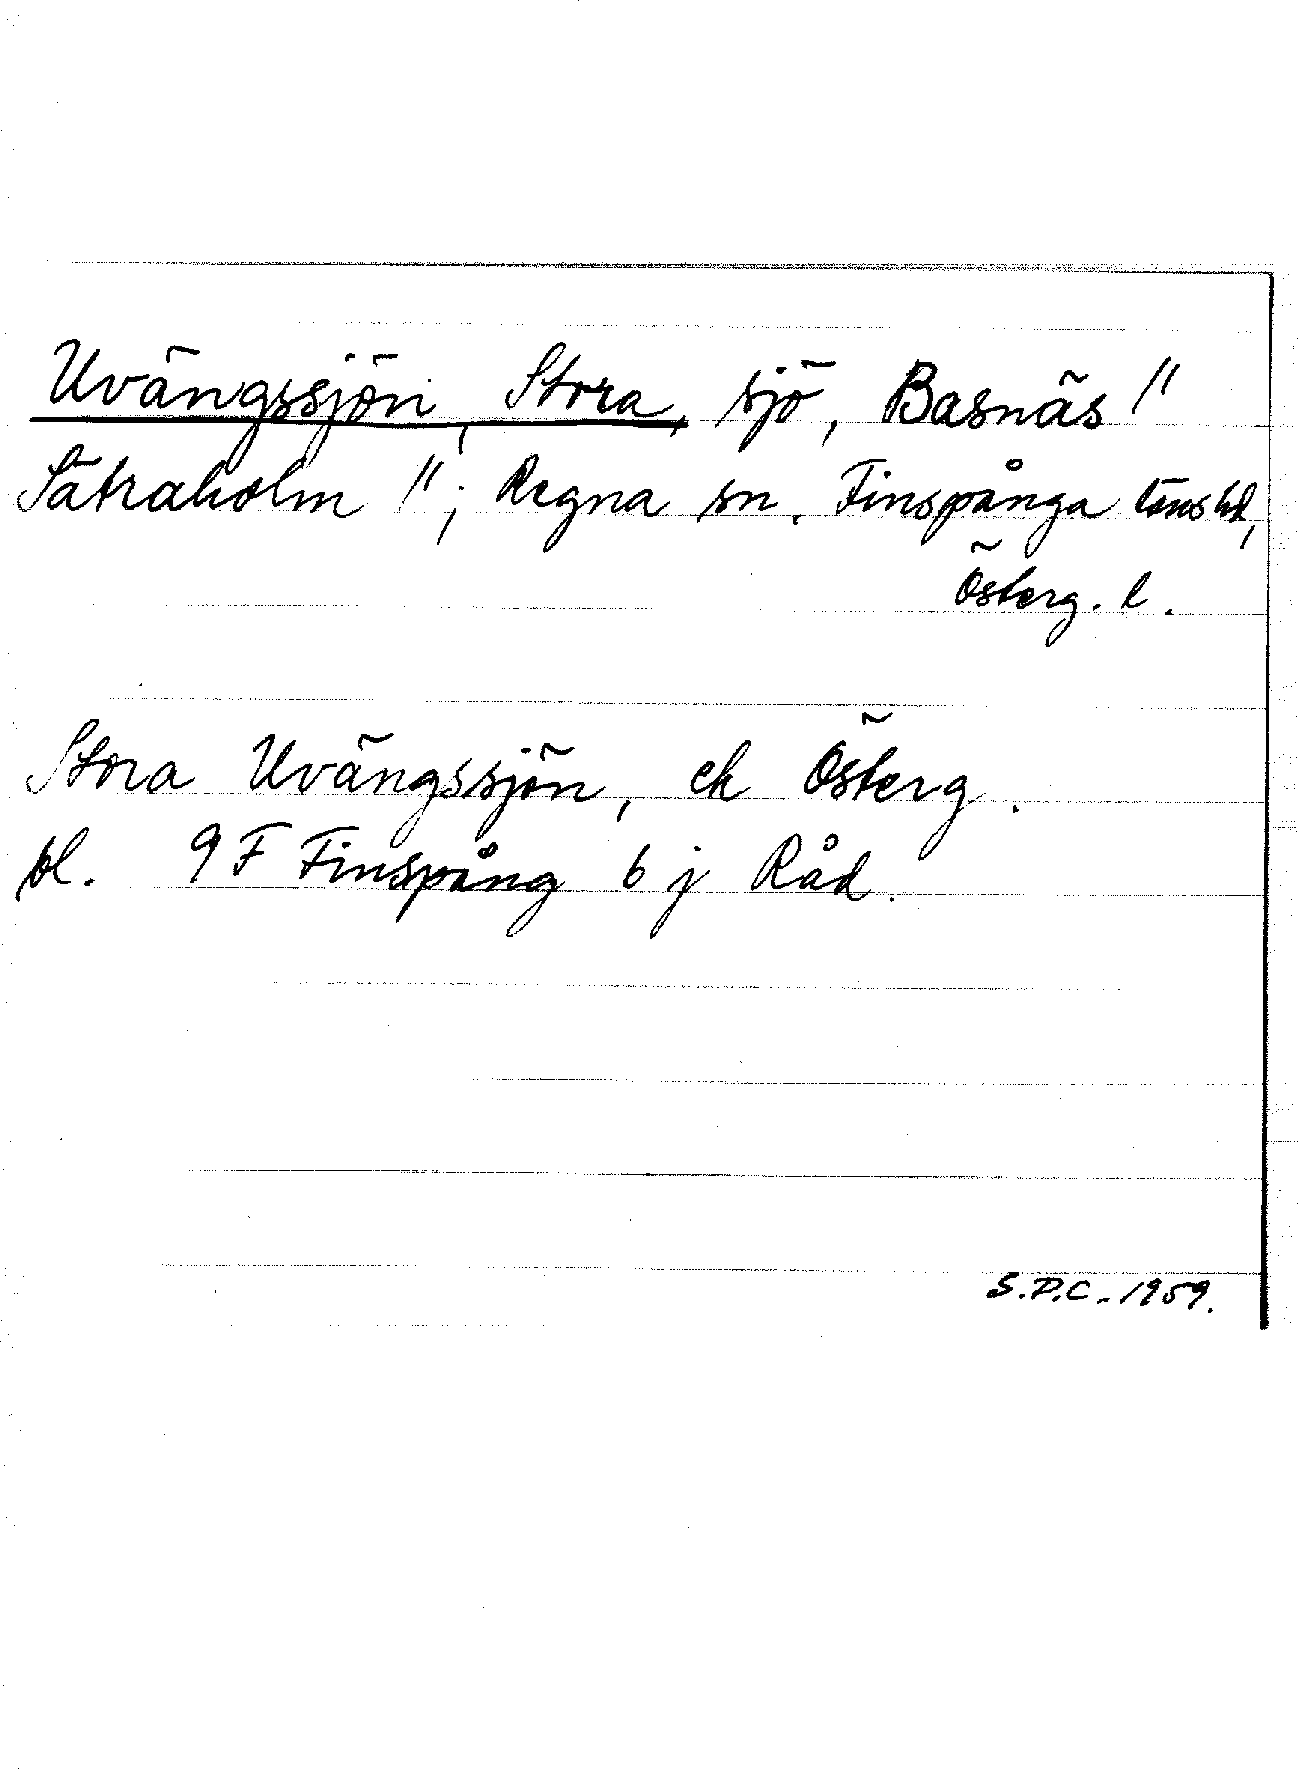 Uvängssjön, Stora, sjö, Basnäs 1/1
Sätraholm 1/1; Regna sn, Finspånga läns hd,
Österg. l.
Stora Uvängssjön, ek Österg.
bl. 9 F Finspång 6 j Råd.
S.D.C. 1959.